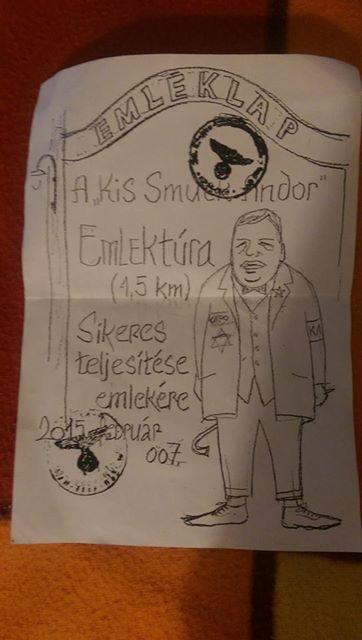 EMLÉKLAP
A „Kis Smuck Andor”
Emlektúra
(1,5 km)
Sikeres
teljesítése
emlekére
2015 február
007.
KAPO
KA